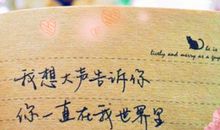 he is
lively and merry as a
我想大声告诉你
你一直在我世界里